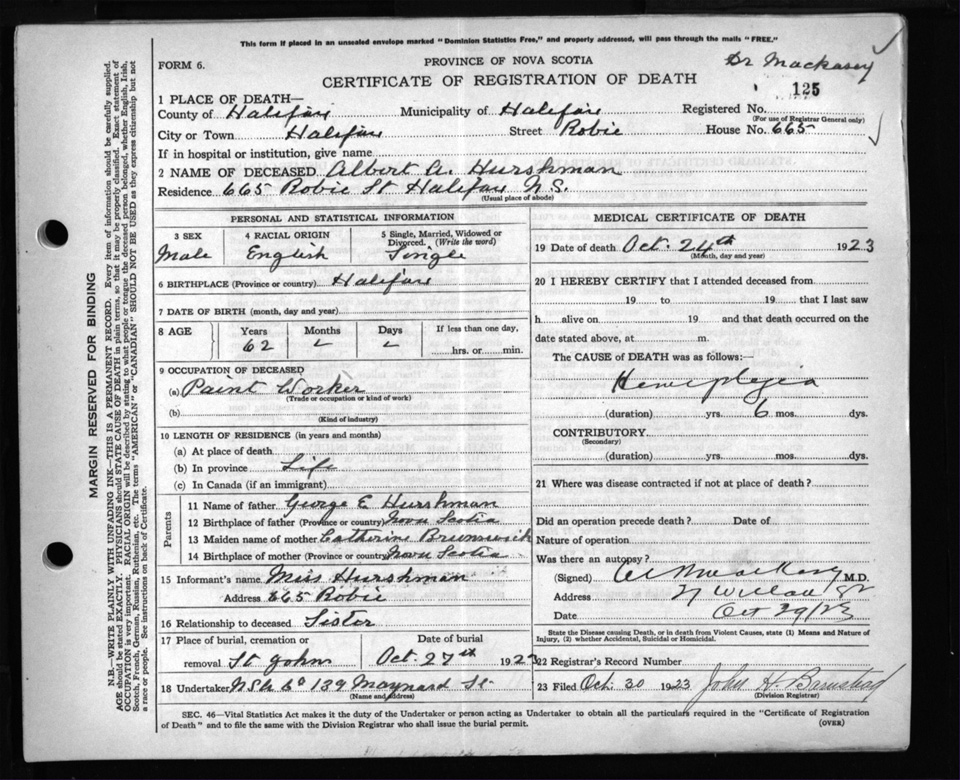 This form if placed in an unsealed envelope marked "Dominion Statistics Free," and properly addressed, will pass through the mails "FREE."
FORM 6.
PROVINCE OF NOVA SCOTIA
Dr Mackasey
CERTIFICATE OF REGISTRATION OF DEATH
125
1 PLACE OF DEATH—
County of Halifax Municipality of Halifax Registered No.
(For use of Registrar General only)
City or Town Halifax Street Robie House No. 665
If in hospital or institution, give name
2 NAME OF DECEASED Albert A. Hurshman
Residence 665 Robie St Halifax N.S.
(Usual place of abode)
PERSONAL AND STATISTICAL INFORMATION
3 SEX 4 RACIAL ORIGIN 5 Single, Married, Widowed or Divorced. (Write the word)
Male English Single
6 BIRTHPLACE (Province or country) Halifax
7 DATE OF BIRTH (month, day and year)
8 AGE Years Months Days If less than one day,
62 hrs. or min.
9 OCCUPATION OF DECEASED
(a) Paint Worker
(Trade or occupation or kind of work)
(b)
(Kind of industry)
10 LENGTH OF RESIDENCE (in years and months)
(a) At place of death
(b) In province Life
(c) In Canada (if an immigrant)
Parents
11 Name of father George E Hurshman
12 Birthplace of father (Province or country) Nova Scotia
13 Maiden name of mother Catherine Brunswick
14 Birthplace of mother (Province or country) Nova Scotia
15 Informant's name Miss Hurshman
Address 665 Robie
16 Relationship to deceased Sister
17 Place of burial, cremation or removal St John
Date of burial Oct. 27th 1923
18 Undertaker 139 Maynard St
(Name and address)
MEDICAL CERTIFICATE OF DEATH
19 Date of death Oct. 24th 1923
(Month, day and year)
20 I HEREBY CERTIFY that I attended deceased from
19 to 19 that I last saw
h alive on 19 and that death occurred on the
date stated above, at m.
The CAUSE of DEATH was as follows:—
Hemiplegia
(duration) yrs. 6 mos. dys.
CONTRIBUTORY
(Secondary)
(duration) yrs. mos. dys.
21 Where was disease contracted if not at place of death?
Did an operation precede death? Date of
Nature of operation
Was there an autopsy?
(Signed) M.D.
Address
Date Oct 29/23
State the Disease causing Death, or in death from Violent Causes, state (1) Means and Nature of Injury, (2) whether Accidental, Suicidal or Homicidal.
22 Registrar's Record Number
23 Filed Oct. 30 1923 John H. Barnstead
(Division Registrar)
SEC. 46—Vital Statistics Act makes it the duty of the Undertaker or person acting as Undertaker to obtain all the particulars required in the "Certificate of Registration
of Death" and to file the same with the Division Registrar who shall issue the burial permit.
(OVER)
MARGIN RESERVED FOR BINDING
N.B.—WRITE PLAINLY WITH UNFADING INK—THIS IS A PERMANENT RECORD. Every item of information should be carefully supplied.
AGE should be stated EXACTLY. PHYSICIANS should STATE CAUSE OF DEATH in plain terms, so that it may be properly classified. Exact statement of
OCCUPATION is very important. RACIAL ORIGIN will be described by stating to what people or tongue the deceased person belonged, whether English, Irish,
Scotch, French, German, Russian, Ruthenian, etc. The terms "AMERICAN" or "CANADIAN" SHOULD NOT BE USED as they express citizenship but not
a race or people. See instructions on back of Certificate.